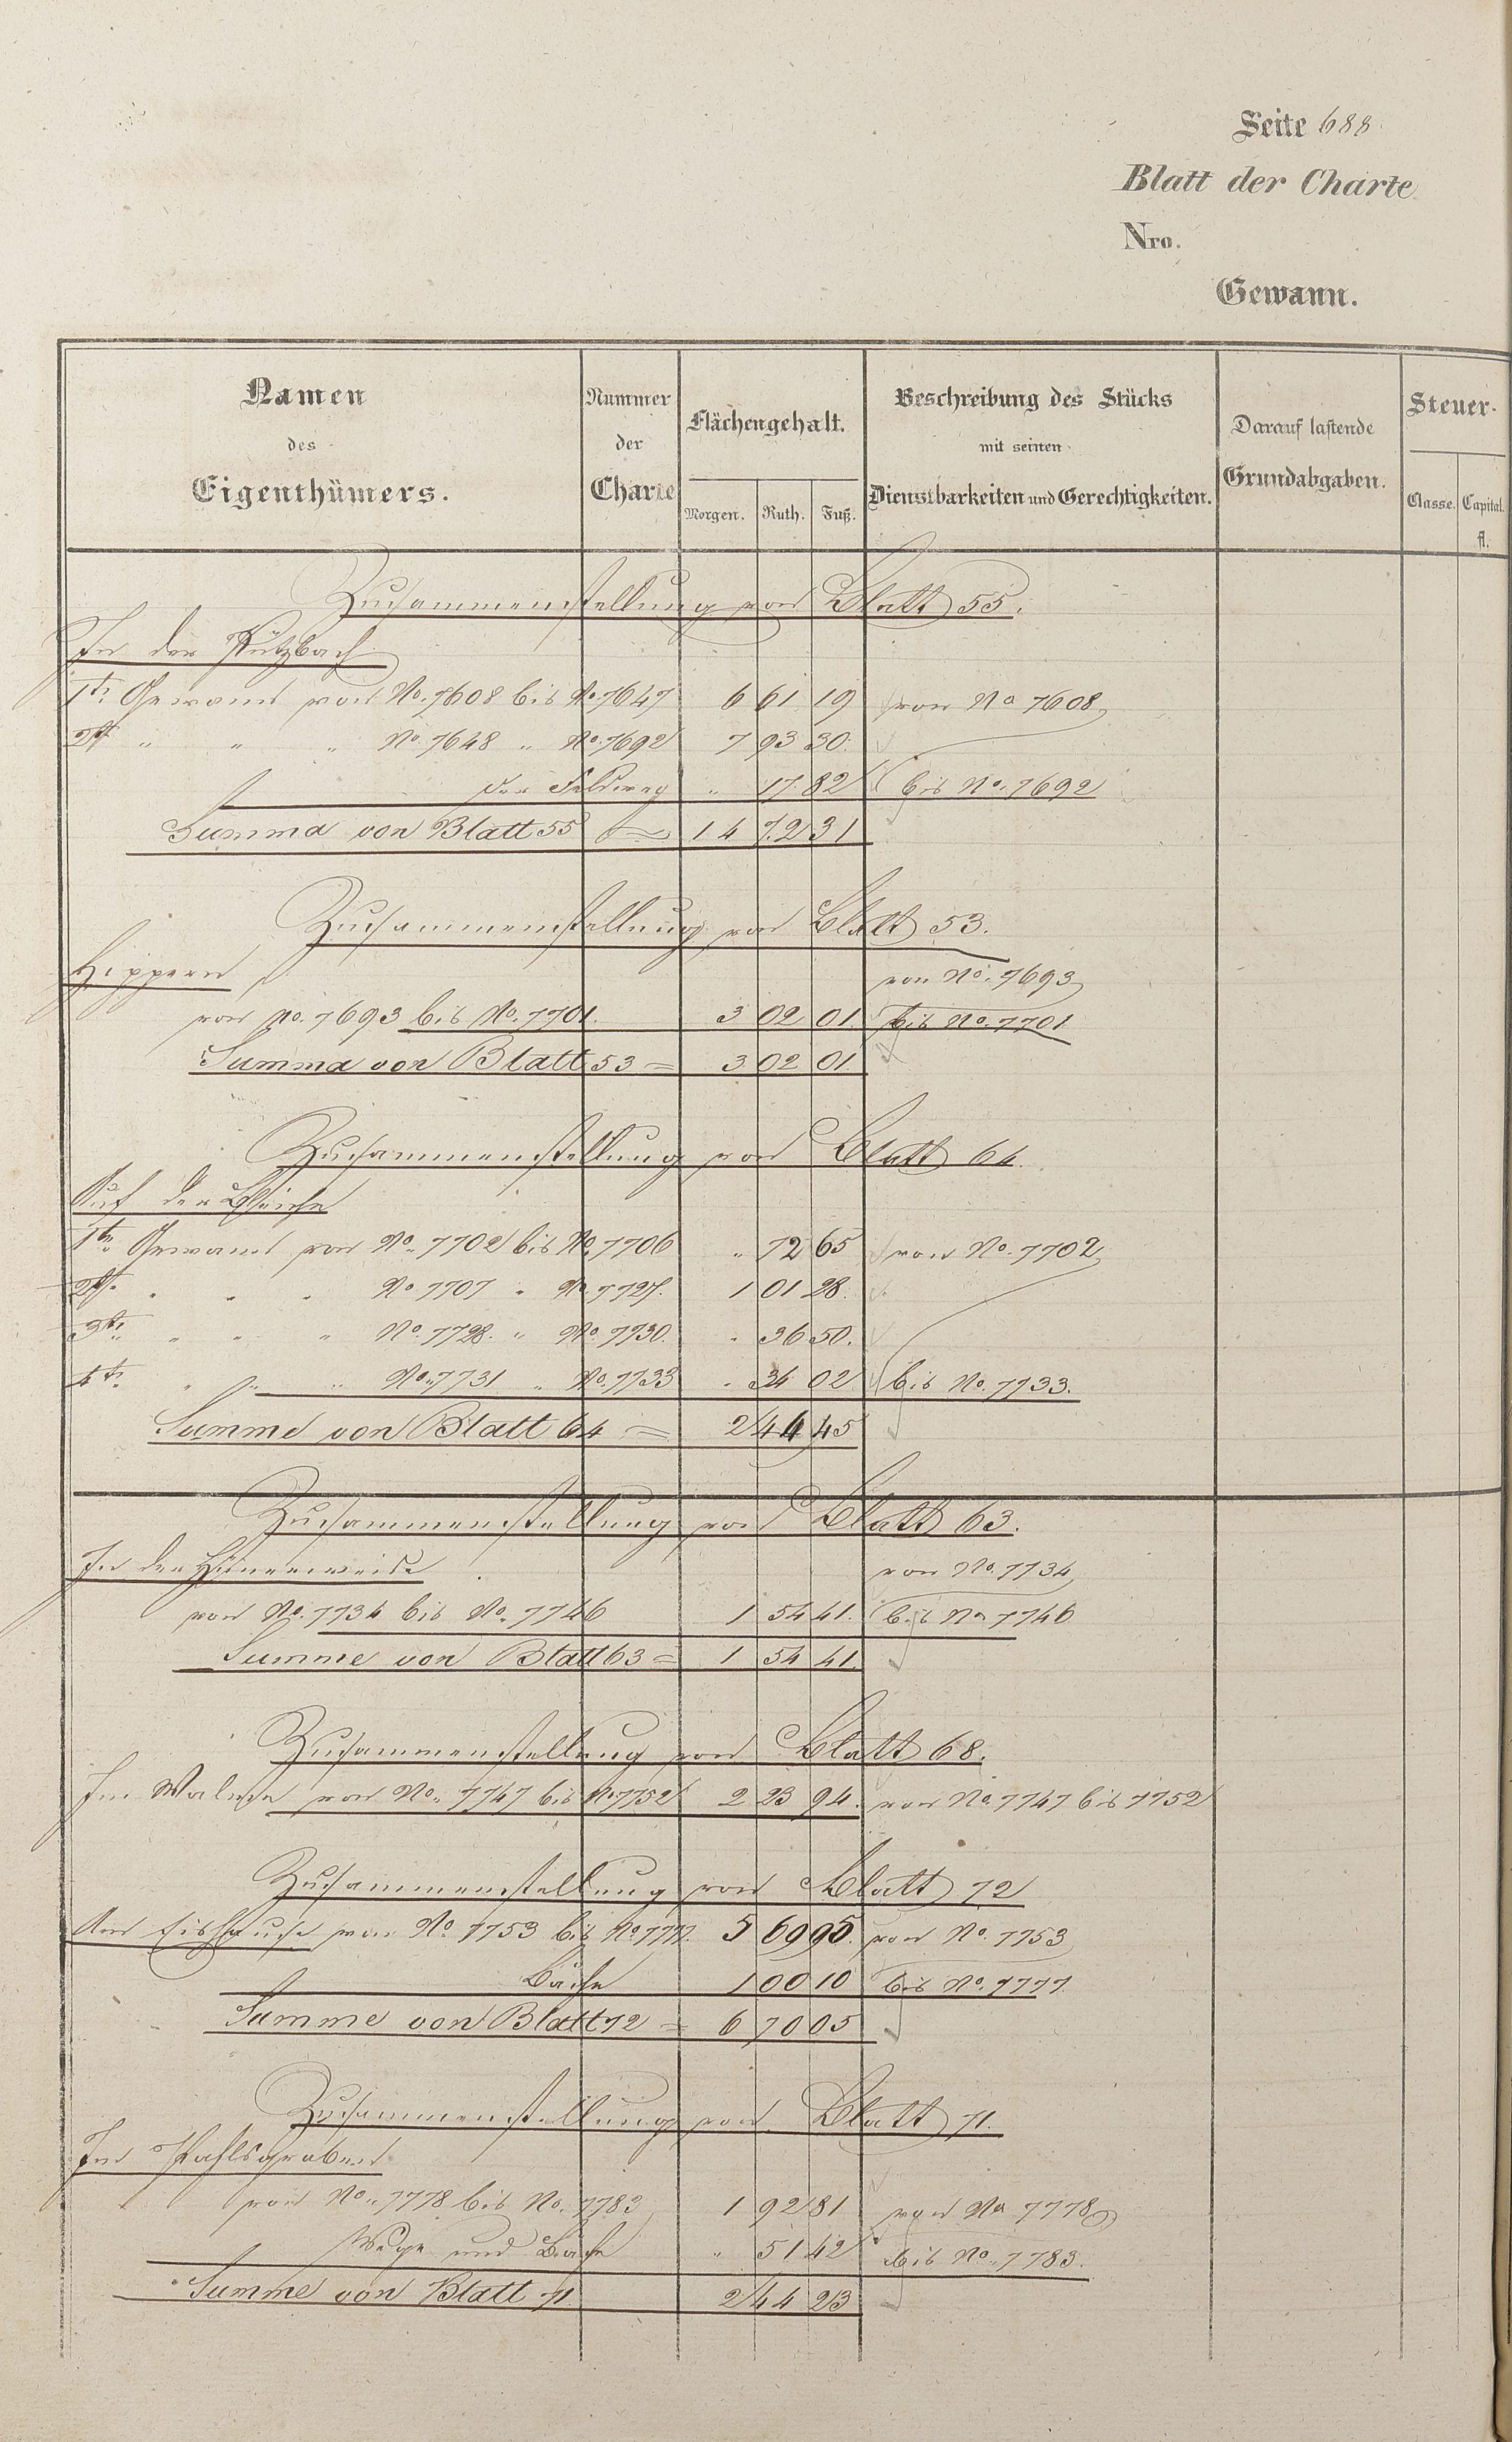 Seite 688
Blatt der Charte
Nro.
Gewann.
Namen des Eigenthümers.
Nummer der Charte
Flächengehalt.
Morgen. Ruth. Fuß.
Beschreibung des Stücks mit seinen Dienstbarkeiten und Gerechtigkeiten.
Darauf lastende Grundabgaben.
Steuer-
Classe. Capital. fl.
Zusammenstellung von Blatt 55.
In der Pützbach
1te Gewann von No. 7608 bis No. 7647 6 61 19 von No 7608
2te " " " No. 7648 " No. 7692 7 93 30.
der Feldweg " 17 82 bis No. 7692
Summa von Blatt 55 = 14 72 31
Zusammenstellung von Blatt 53.
Hippern von No. 7693
von No. 7693 bis No. 7701. 3 02 01. bis No. 7701
Summa von Blatt 53 = 3 02 01.
Zusammenstellung von Blatt 64.
Auf der Bleiche
1te Gewann von No. 7702 bis No. 7706 " 72 65 von No. 7702
2te " " " No 7707 " No 7727. 1 01 28.
3te " " " No. 7728. " No. 7730. " 36 50.
4te " " " No. 7731 " No. 7733 " 34 02 bis No. 7733.
Summe von Blatt 64 = 2 44 45
Zusammenstellung von Blatt 63.
In der von No. 7734
von No. 7734 bis No. 7746 1 54 41. bis No 7746
Summe von Blatt 63 = 1 54 41.
Zusammenstellung von Blatt 68.
Im von No. 7747 bis No 7752 2 23 94. von No 7747 bis 7752
Zusammenstellung von Blatt 72
Am Eishause von No 7753 bis No. 7777. 5 69 95. von No. 7753
Bäche 1 00 10 bis No. 7777
Summe von Blatt 72 = 6 70 05
Zusammenstellung von Blatt 71.
Im Pfahlsgraben
von No. 7778 bis No. 7783 1 92 81 von No 7778
Wege und Bäche " 51 42 bis No. 7783.
Summe von Blatt 71 2 44 23